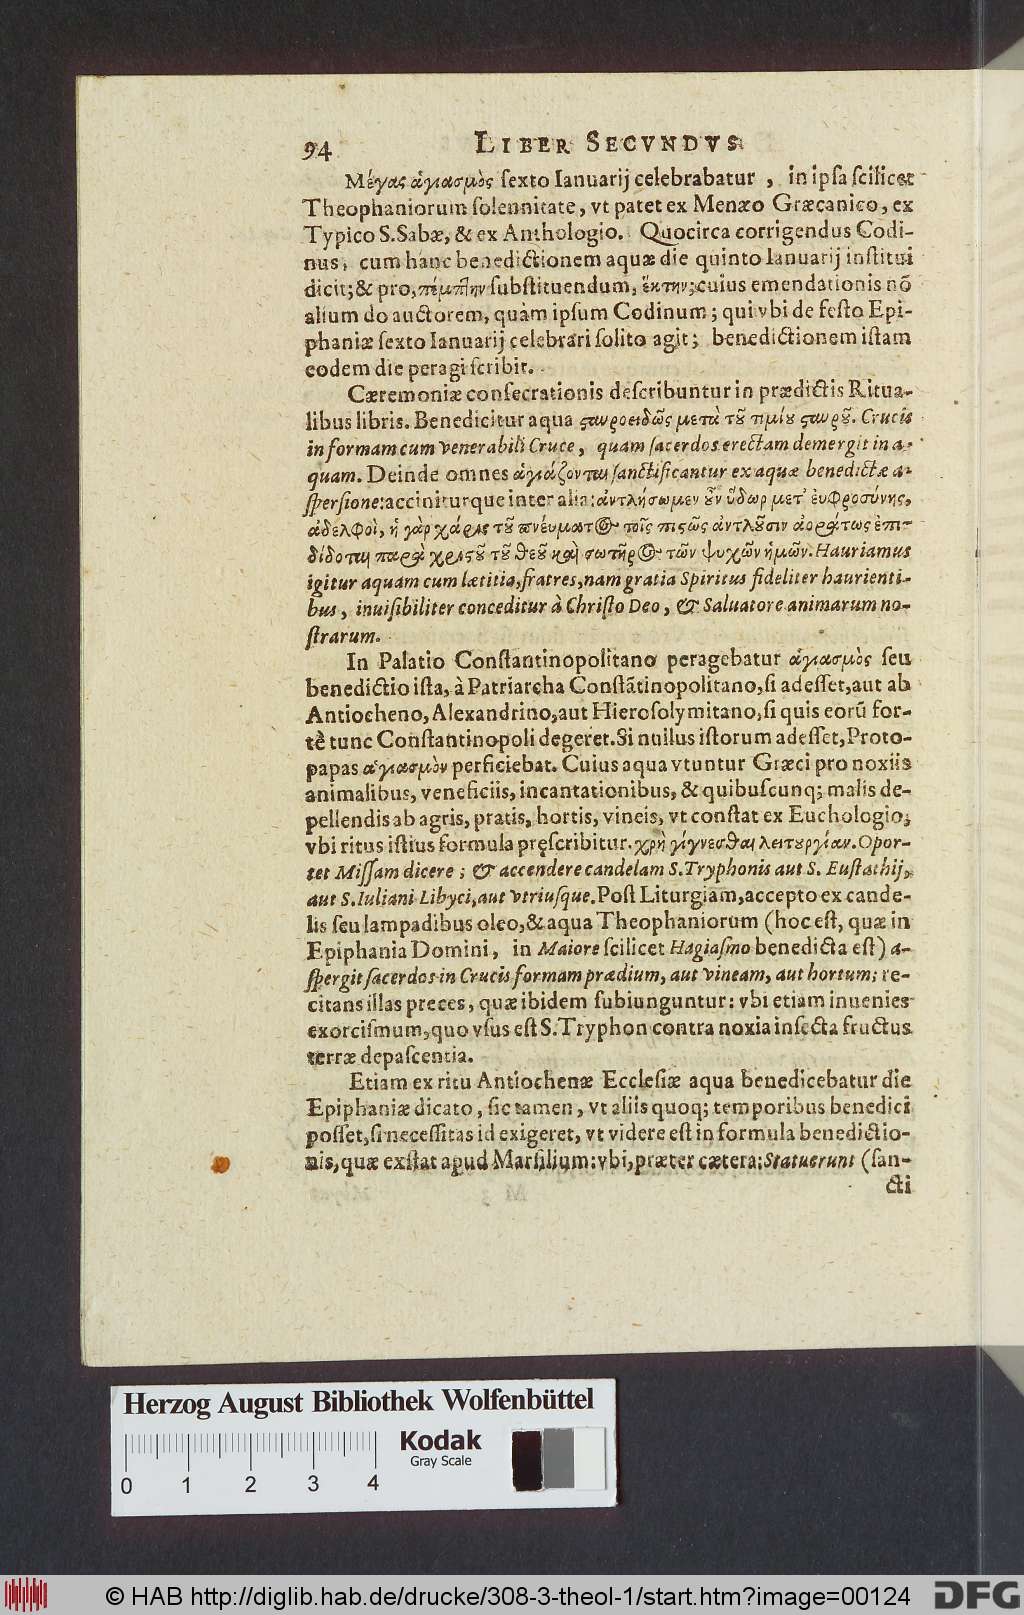 94 LIBER SECVNDVS
Μέγας ἁγιασμὸς ſexto Ianuarij celebrabatur , in ipſa ſcilicet
Theophaniorum ſolennitate, vt patet ex Menæo Græcanico, ex
Typico S. Sabæ, & ex Anthologio. Quocirca corrigendus Codi-
nus, cum hanc benedictionem aquæ die quinto Ianuarij inſtitui
dicit; & pro, πέμπτην ſubſtituendum, ἕκτην; cuius emendationis nõ
alium do auctorem, quàm ipſum Codinum; qui vbi de feſto Epi-
phaniæ ſexto Ianuarij celebrari ſolito agit; benedictionem iſtam
eodem die peragi ſcribit.
Cæremoniæ conſecrationis deſcribuntur in prædictis Ritua-
libus libris. Benedicitur aqua ϛαυροειδῶς μετὰ τȣ͂ τιμίȣ ϛαυρȣ͂. Crucis
in formam cum venerabili Cruce, quam ſacerdos erectam demergit in a-
quam. Deinde omnes ἁγιάζονται ſanctificantur ex aquæ benedictæ a-
ſperſione: acciniturque inter alia: ἀντλήσωμεν ȣ͂ν ὕδωρ μετ' ἐυφροσύνης,
ἀδελφοὶ, ἡ γὰρ χάρις τȣ͂ πνέυματος τοῖς πιϛῶς ἀντλȣ͂σιν ἀοράτως ἐπι-
δίδοται παρὰ χριϛȣ͂ τȣ͂ θεȣ͂ καὶ σωτῆρος τῶν ψυχῶν ἡμῶν. Hauriamus
igitur aquam cum lætitia, fratres, nam gratia Spiritus fideliter haurienti-
bus, inuiſibiliter conceditur à Chriſto Deo, & Saluatore animarum no-
ſtrarum.
In Palatio Conſtantinopolitano peragebatur ἁγιασμὸς ſeu
benedictio iſta, à Patriarcha Conſtãtinopolitano, ſi adeſſet, aut ab
Antiocheno, Alexandrino, aut Hieroſolymitano, ſi quis eorũ for-
tè tunc Conſtantinopoli degeret. Si nullus iſtorum adeſſet, Proto-
papas ἁγιασμὸν perficiebat. Cuius aqua vtuntur Græci pro noxiis
animalibus, veneficiis, incantationibus, & quibuſcunq; malis de-
pellendis ab agris, pratis, hortis, vineis, vt conſtat ex Euchologio,
vbi ritus iſtius formula pręſcribitur. χρὴ γίγνεσθαι λειτȣργίαν. Opor-
tet Miſſam dicere ; & accendere candelam S. Tryphonis aut S. Euſtathij,
aut S. Iuliani Libyci, aut vtriuſque. Poſt Liturgiam, accepto ex cande-
lis ſeu lampadibus oleo, & aqua Theophaniorum (hoc eſt, quæ in
Epiphania Domini, in Maiore ſcilicet Hagiaſmo benedicta eſt) a-
ſpergit ſacerdos in Crucis formam prædium, aut vineam, aut hortum; re-
citans illas preces, quæ ibidem ſubiunguntur: vbi etiam inuenies
exorciſmum, quo vſus eſt S. Tryphon contra noxia inſecta fructus
terræ depaſcentia.
Etiam ex ritu Antiochenæ Eccleſiæ aqua benedicebatur die
Epiphaniæ dicato, ſic tamen, vt aliis quoq; temporibus benedici
poſſet, ſi neceſſitas id exigeret, vt videre eſt in formula benedictio-
nis, quæ exſtat apud Marſilium: vbi, præter cætera; Statuerunt (ſan-
cti
Herzog August Bibliothek Wolfenbüttel
Kodak
Gray Scale
0 1 2 3 4
© HAB http://diglib.hab.de/drucke/308-3-theol-1/start.htm?image=00124
DFG